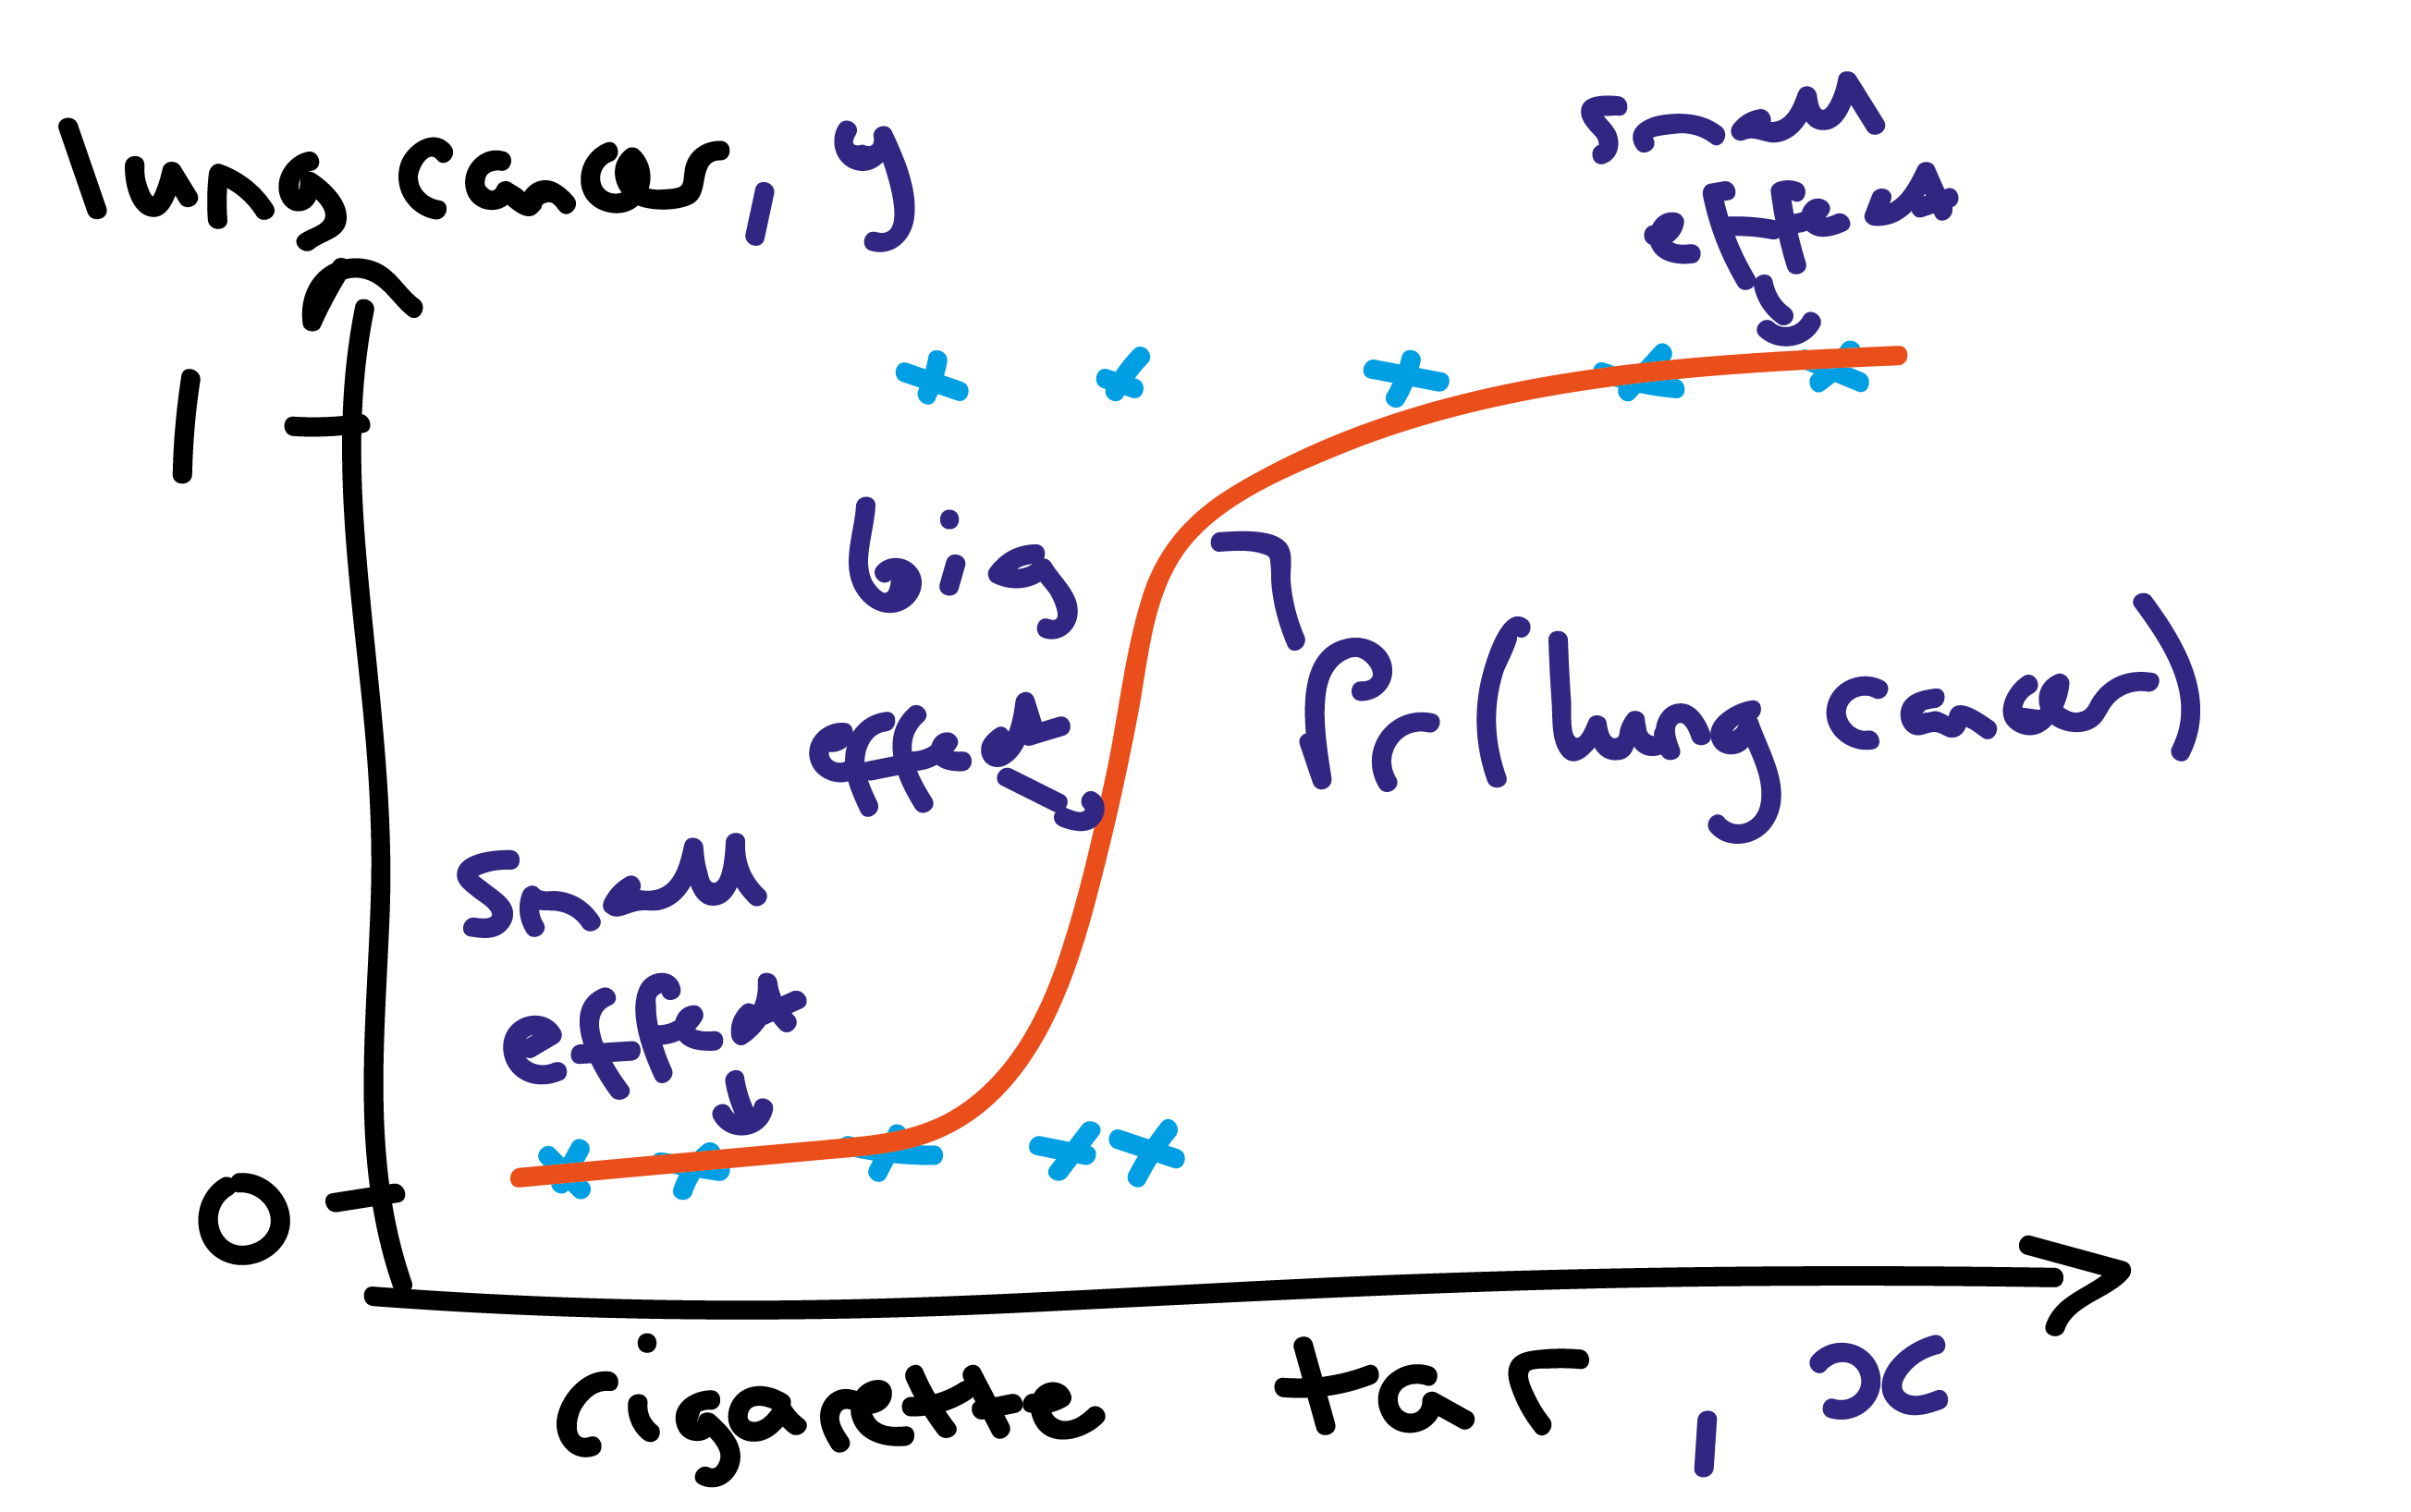 lung cancer, y
small
effect
1
big
effect
Pr(lung cancer)
small
effect
0
cigarette tar, x